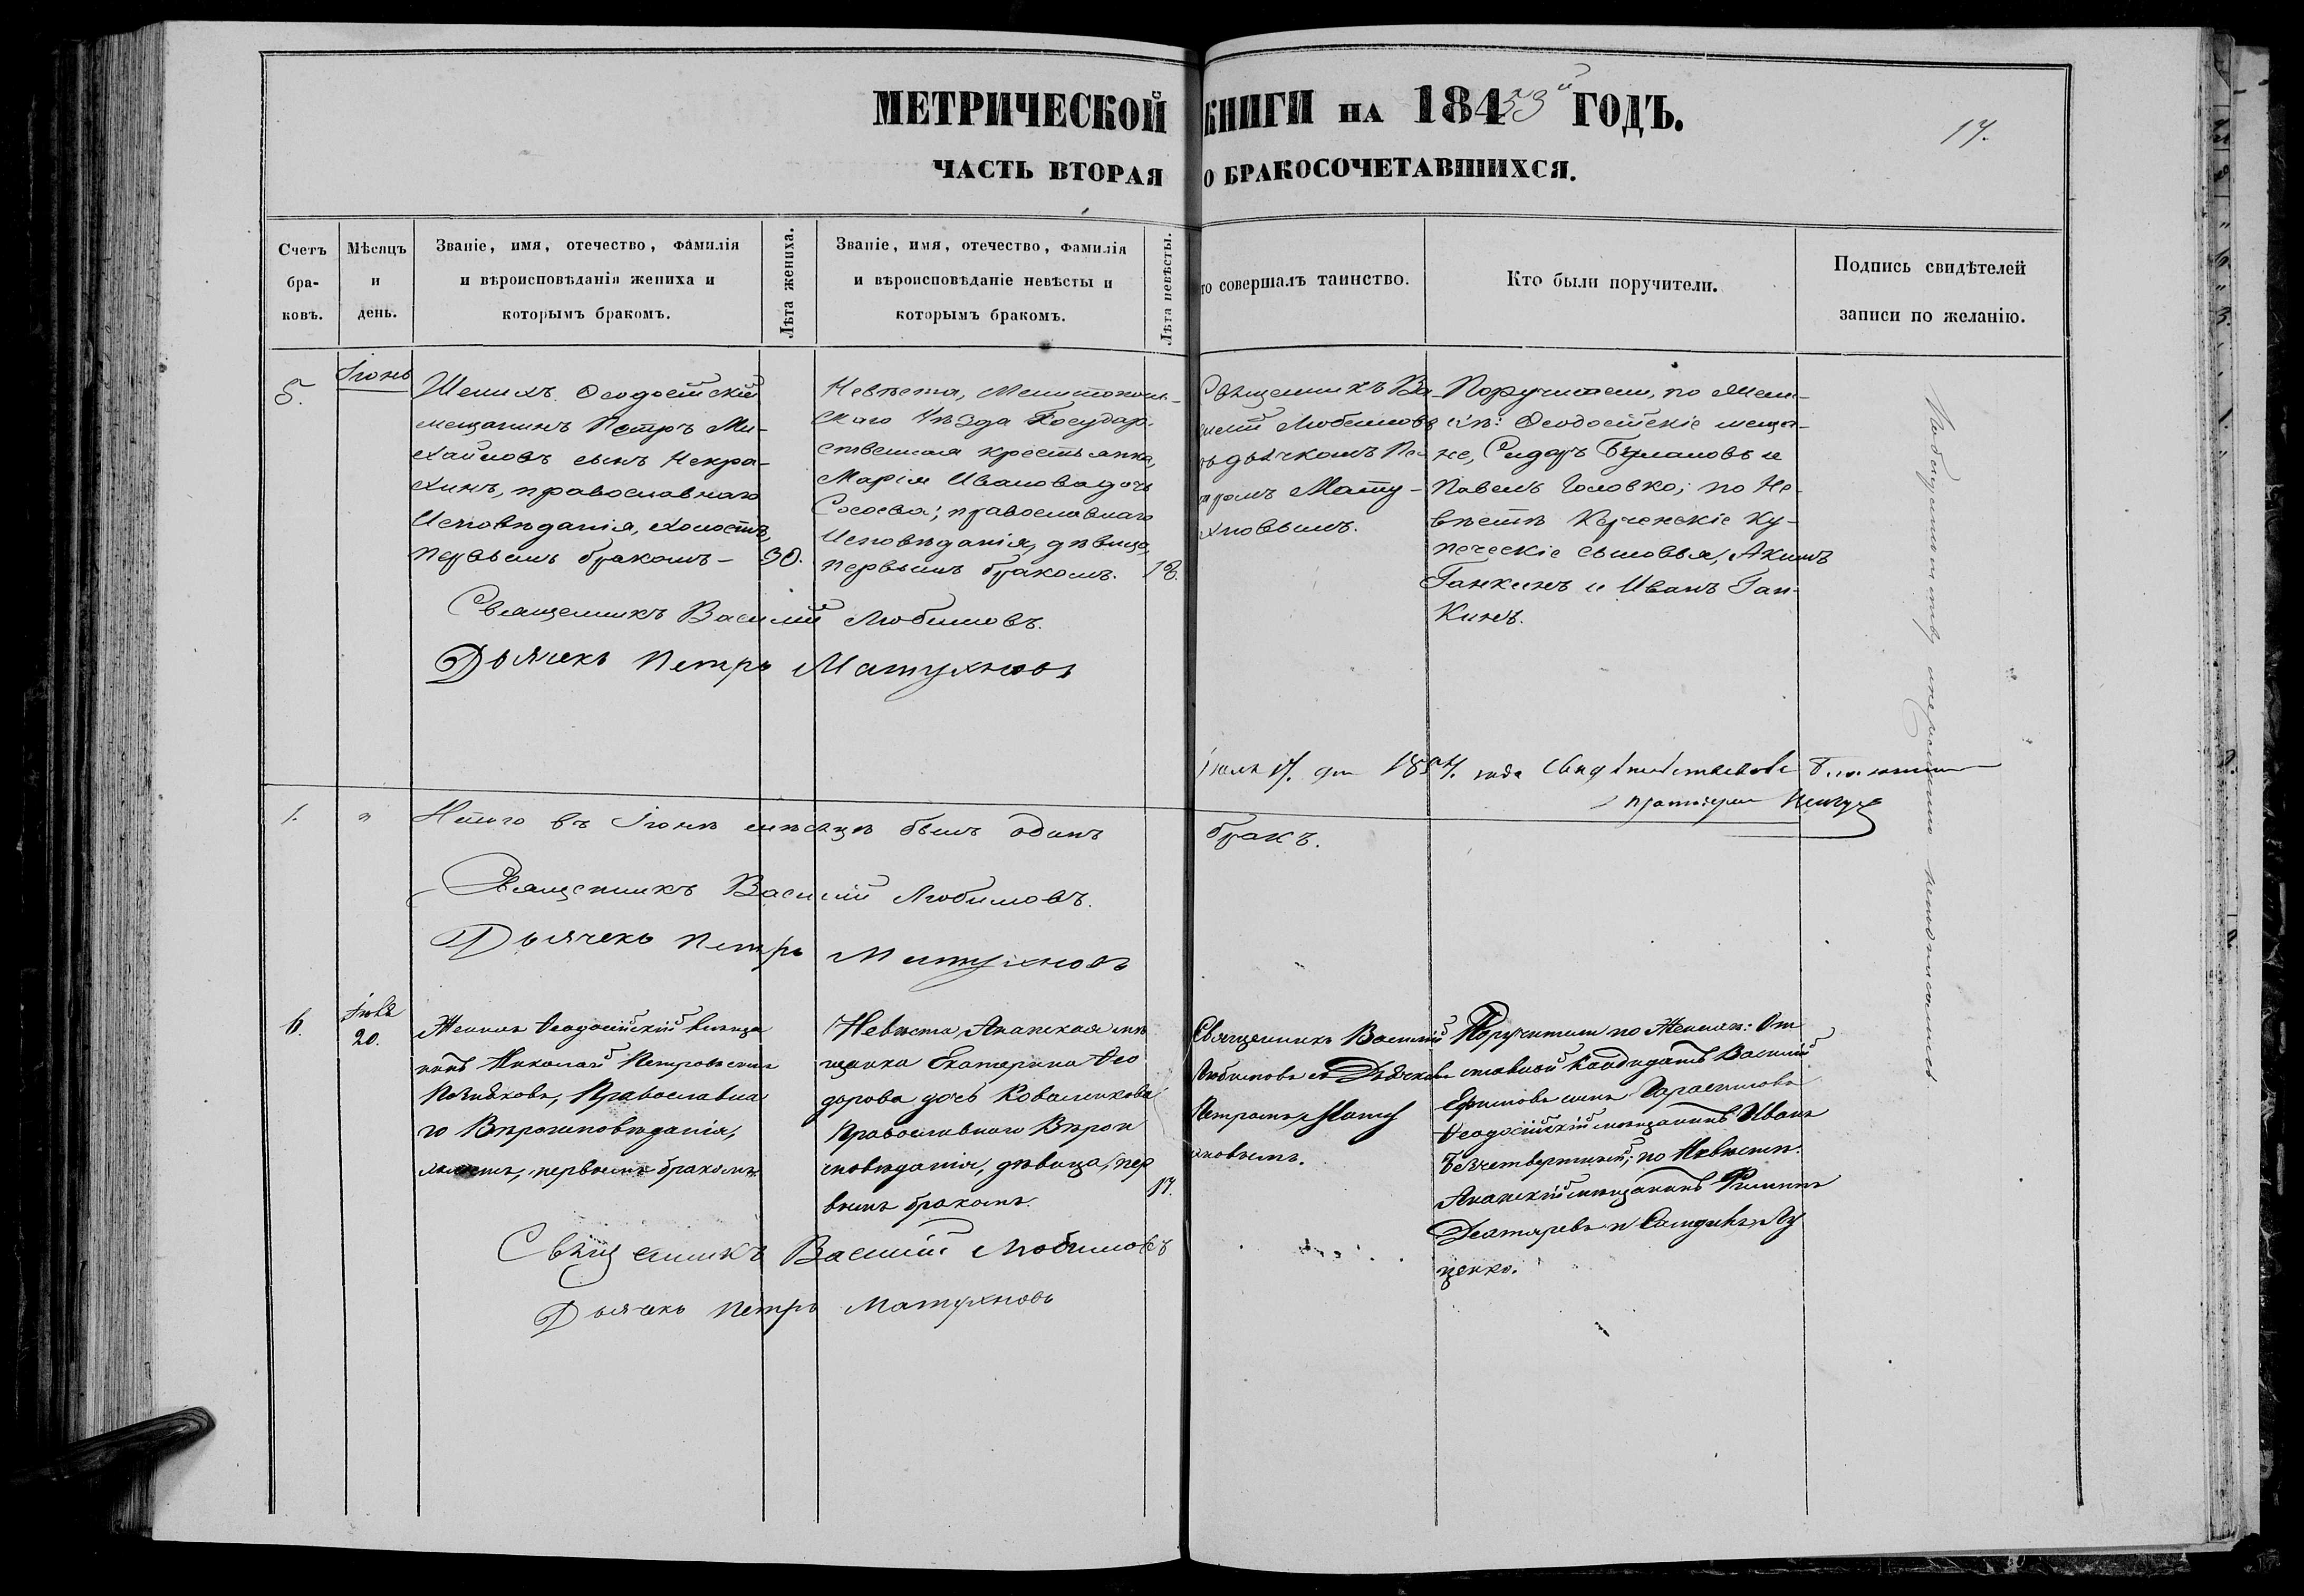 МЕТРИЧЕСКОЙ КНИГИ НА 18453й ГОДЪ.
17.
ЧАСТЬ ВТОРАЯ О БРАКОСОЧЕТАВШИХСЯ.
Счетъ
бра-
ковъ.
Мѣсяцъ
и
день.
Званіе, имя, отечество, фамилія
и вѣроисповѣданія жениха и
которымъ бракомъ.
Лѣта жениха.
Званіе, имя, отечество, фамилія
и вѣроисповѣданіе невѣсты и
которымъ бракомъ.
Лѣта невѣсты.
то совершалъ таинство.
Кто были поручители.
Подпись свидѣтелей
записи по желанію.
5.
Іюнь
Женихъ Ѳеодосійскій
мещанинъ Петръ Ми-
хайловъ сынъ Некра-
хинъ, православнаго
Исповѣданія, холостъ,
первымъ бракомъ-
30.
Невѣста, Мелитополь-
скаго Уѣзда Государ-
ственная крестьянка,
Марія Иванова дочь
Сосоева; православнаго
Исповѣданія, дѣвица,
первымъ бракомъ.
18.
Священникъ Ва-
силій Любимовъ
съ дьячкомъ Пе-
тромъ Мату-
хновымъ.
Поручители, по Жени-
хѣ: Ѳеодосійскіе меща-
не, Сидоръ Булановъ и
Павелъ Головко; по Не-
вѣстѣ Керченскіе Ку-
печескіе сыновья, Акимъ
Ганкинъ и Иванъ Ган-
кинъ.
Священникъ Василій Любимовъ.
Дьячекъ Петръ Матухновъ
Іюля 17. дня 1854. года свидѣтельствовалъ
протоіерей
1.
"
Итого въ Іюнѣ мѣсяцѣ былъ одинъ бракъ.
Священникъ Василій Любимовъ.
Дьячекъ Петръ Матухновъ
6.
20.
Женихъ Ѳеодосійскій мѣща
нинъ Николай Петровъ сынъ
Православна
го Вѣроисповѣданія,
первымъ бракомъ
Невѣста, Анапская мѣ
щанка Екатерина Ѳео
дорова дочь Ковальчикова
Православнаго Вѣрои
сповѣданія, дѣвица, пер
вымъ бракомъ.
17.
Священникъ Василій
Любимовъ съ Дьячкомъ
Петромъ Мату
хновымъ.
Поручители по Женихѣ: От
ставной Кандидатъ Василій
Ефимовъ сынъ Герасимовъ
Ѳеодосійскій мѣщанинъ Иванъ
Безчетвертный; по Невѣстѣ:
Анапскій мѣщанинъ Филипъ
Дехтяревъ и Лу
ценко.
Священникъ Василій Любимовъ
Дьячекъ Петръ Матухновъ